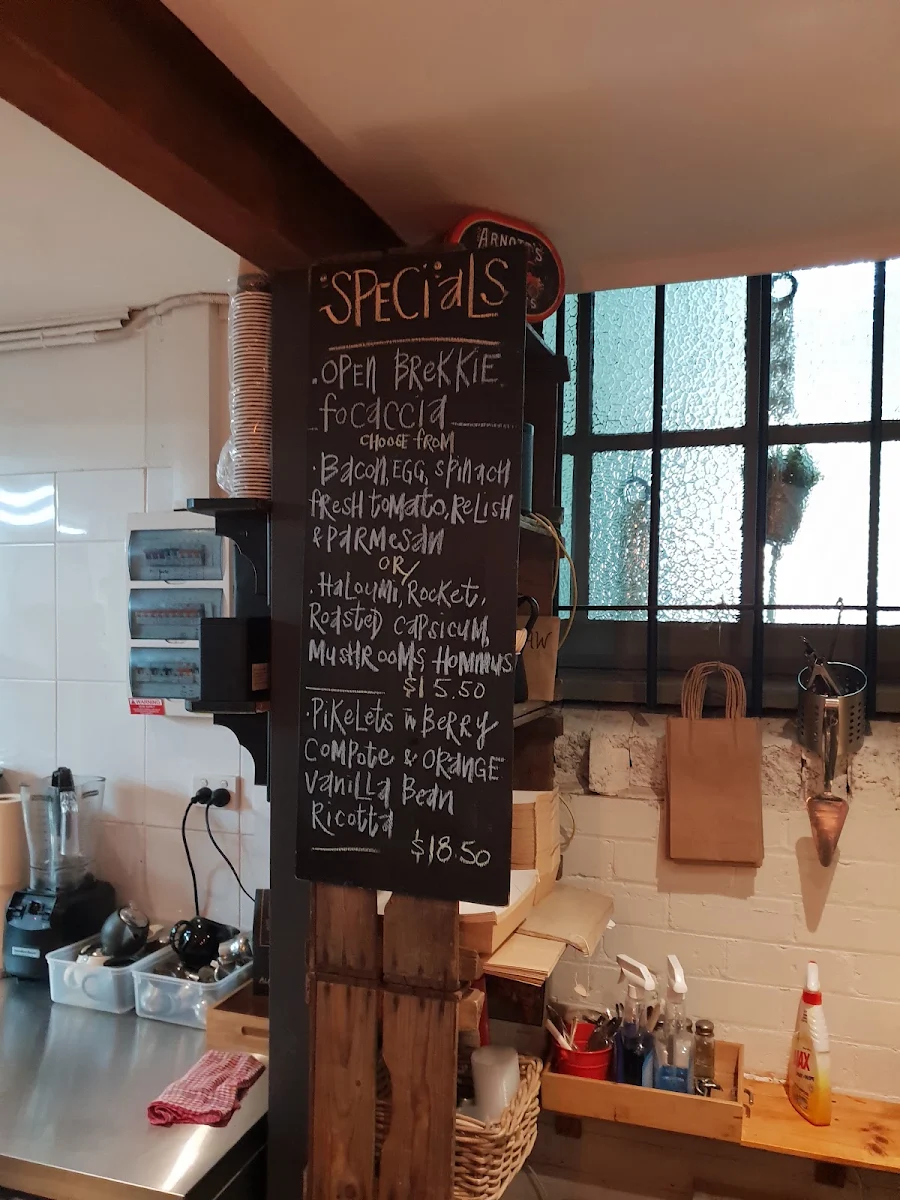 ARNOTT'S
SPECiaLS
.OPEN BREKKIE
focaccia
CHOOSE FROM
·Bacon, EGG, SPINach
fResh tomato, ReLisH
& PaRMesan
OR/
·HaLoumi, Rocket,
Roasted capsicum,
MUSHROOMS HOMMUS
$15.50
·PiKeLets w BeRRy
Compote & ORaNGE
VaniLLa Bean
Ricotta
$18.50
WARNING